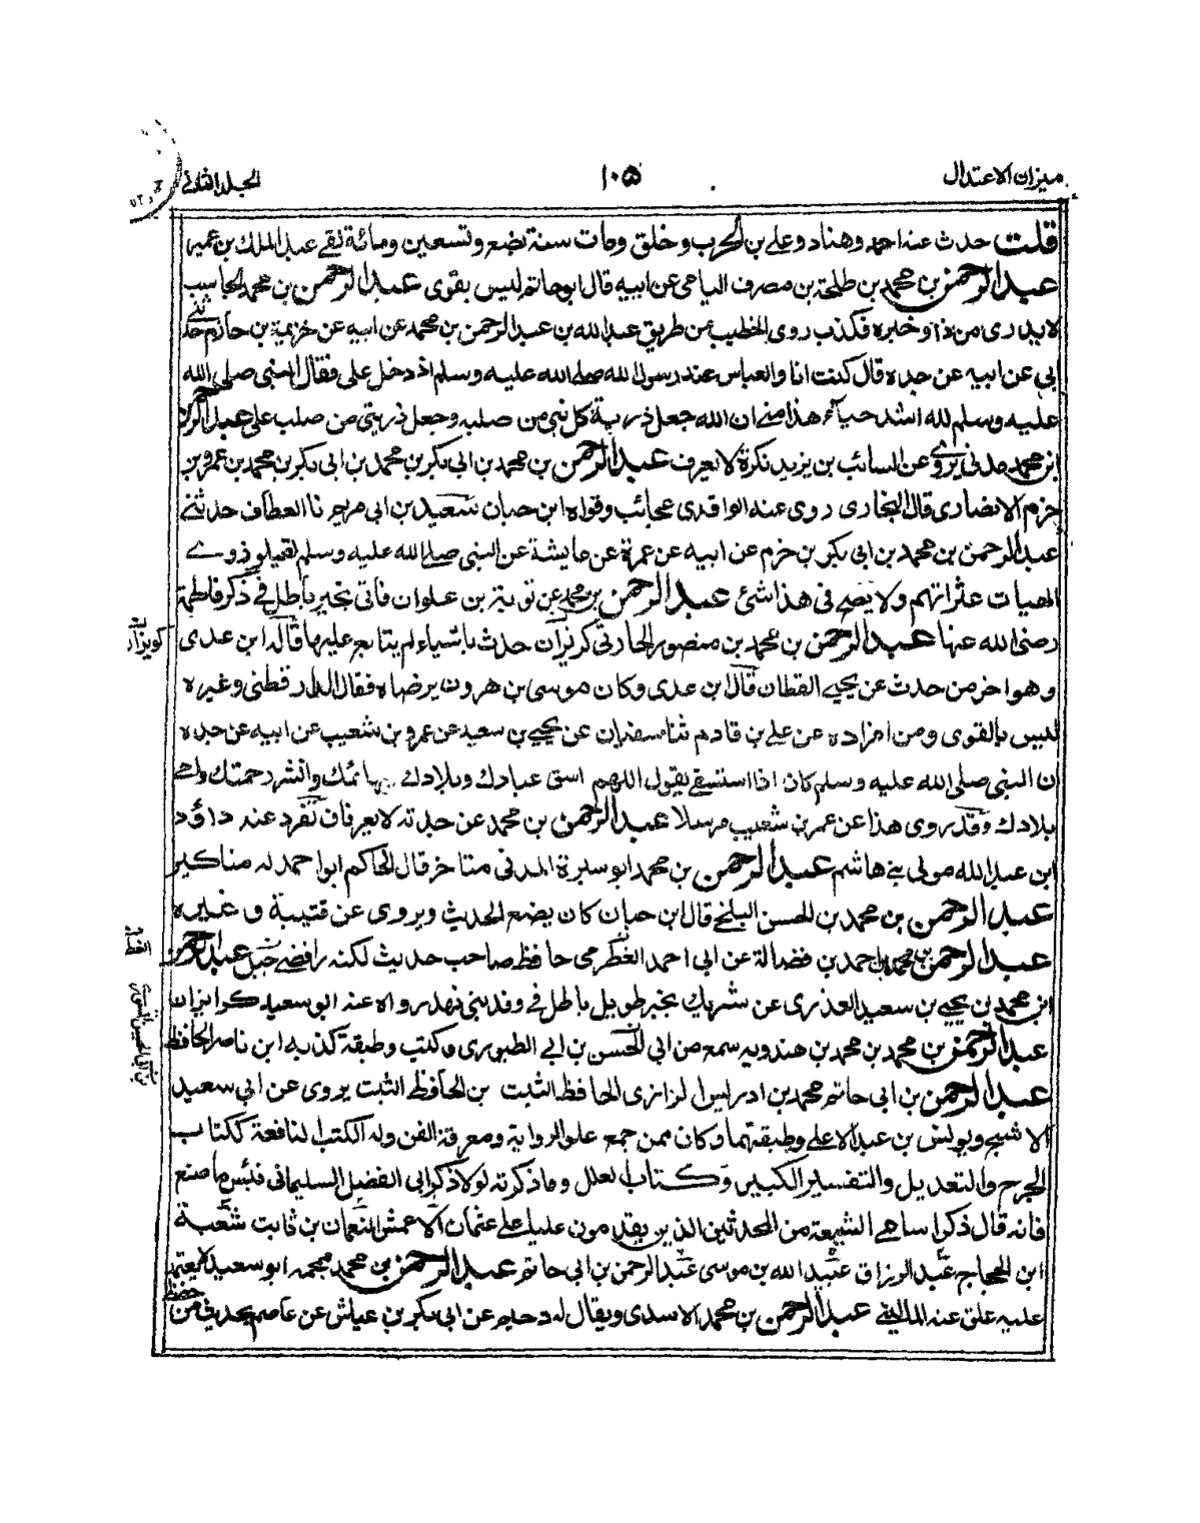 ميزان الاعتدال
١٠٥
الجلد الثاني
قلت حدث عنه احمد وهناد وعلي بن الحرب وخلق ومات سنة بضع وتسعين ومائة لقے عبد الملك بن عمير
عبد الرحمن بن محمد بن طلحة بن مصرف اليامي عن ابيه قال ابو حاتم ليس بقوى عبد الرحمن بن محمد الحاسب
لا يدرى من ذا وخبره فكذب روى الخطيب من طريق عبد الله بن عبد الرحمن بن محمد عن ابيه عن خزيمة بن حازم حدثنے
ابي عن ابيه عن جده قال كنت انا والعباس عند رسول الله صلى الله عليه وسلم اذ دخل على فقال النبي صلى الله
عليه وسلم لله اشد حبا له هذا منے ان الله جعل ذرية كل نبي من صلبه وجعل ذريتي من صلب على عبد الرحمن
ابن محمد مدني يروے عن السائب بن يزيد نكرة لا يعرف عبد الرحمن بن محمد بن ابي بكر بن محمد بن ابي بكر بن محمد بن عمرو بن
حزم الانصارى قال البخارى روى عنه الواقدى عجائب وقواه ابن حبان سعيد بن ابي مريم نا العطاف حدثنے
عبد الرحمن بن محمد بن ابي بكر بن حزم عن ابيه عن عمرة عن عايشة عن النبي صلى الله عليه وسلم اقيلو ذوے
الهيات عثراتهم ولا يصح في هذا شئ عبد الرحمن بن محمد عن توبة بن علوان فاتى بخبر باطل في ذكر فاطمة
رضى الله عنها عبد الرحمن بن محمد بن منصور الحارثي كرنزان حدث باشياء لم يتابع عليها قاله ابن عدى
كويزان
وهو اخر من حدث عن يحيے القطان قال ابن عدى وكان موسى بن هرون يرضاه فقال الدار قطني وغيره
ليس بالقوى ومن افراده عن علي بن قادم ثنا سفيان عن يحيے بن سعيد عن عمرو بن شعيب عن ابيه عن جده
ان النبي صلى الله عليه وسلم كان اذا استسقے يقول اللهم اسق عبادك وبلادك بهائمك وانشر رحمتك واحے
بلادك وقد روى هذا عن عمر بن شعيب مرسلا عبد الرحمن بن محمد عن جدته لا يعرفان تفرد عنه داؤد
ابن عبد الله مولى بنے هاشم عبد الرحمن بن محمد ابو سبرة المدني متاخر قال الحاكم ابو احمد له مناكير
عبد الرحمن بن محمد بن الحسن البلخے قال ابن حبان كان يضع الحديث ويروى عن قتيبة و غيره
عبد الرحمن بن محمد بن احمد بن فضالة عن ابي احمد الغطرمى حافظ صاحب حديث لكنه رافضے جبل عبد الرحمن
ابن محمد بن يحيے بن سعيد العذرى عن شريك بخبر طويل باطل في وفد بني نهد رواه عنه ابو سعيد كوايزان
عبد الرحمن بن محمد بن محمد بن هندويه سمع من ابي الحسن بن ابے الطيورى وكتب وطبقة كذبه ابن ناصر الحافظ
عبد الرحمن بن ابي حاتم محمد بن ادريس الرازى الحافظ الثبت بن الحافظ الثبت يروى عن ابي سعيد
الاشج ويونس بن عبد الاعلى وطبقتهما وكان ممن جمع علو الرواية ومعرفة الفن وله الكتب النافعة ككتاب
الجرح والتعديل والتفسير الكبير وكتاب العلل وما ذكرته لولا ذكر ابى الفضل السليماني فبئس ما صنع
فانه قال ذكر اسامے الشيعة من المحدثين الذين يقدمون عليا على عثمان الاعمش النعمان بن ثابت شعبة
ابن الحجاج عبد الرزاق عبيد الله بن موسى عبد الرحمن بن ابي حاتم عبد الرحمن بن محمد محمه ابو سعيد لا يعتمد
عليه علق عنه الماليني عبد الرحمن بن محمد الاسدى ويقال له دحيم عن ابى بكر بن عياش عن عاصم بحديث من حفظ